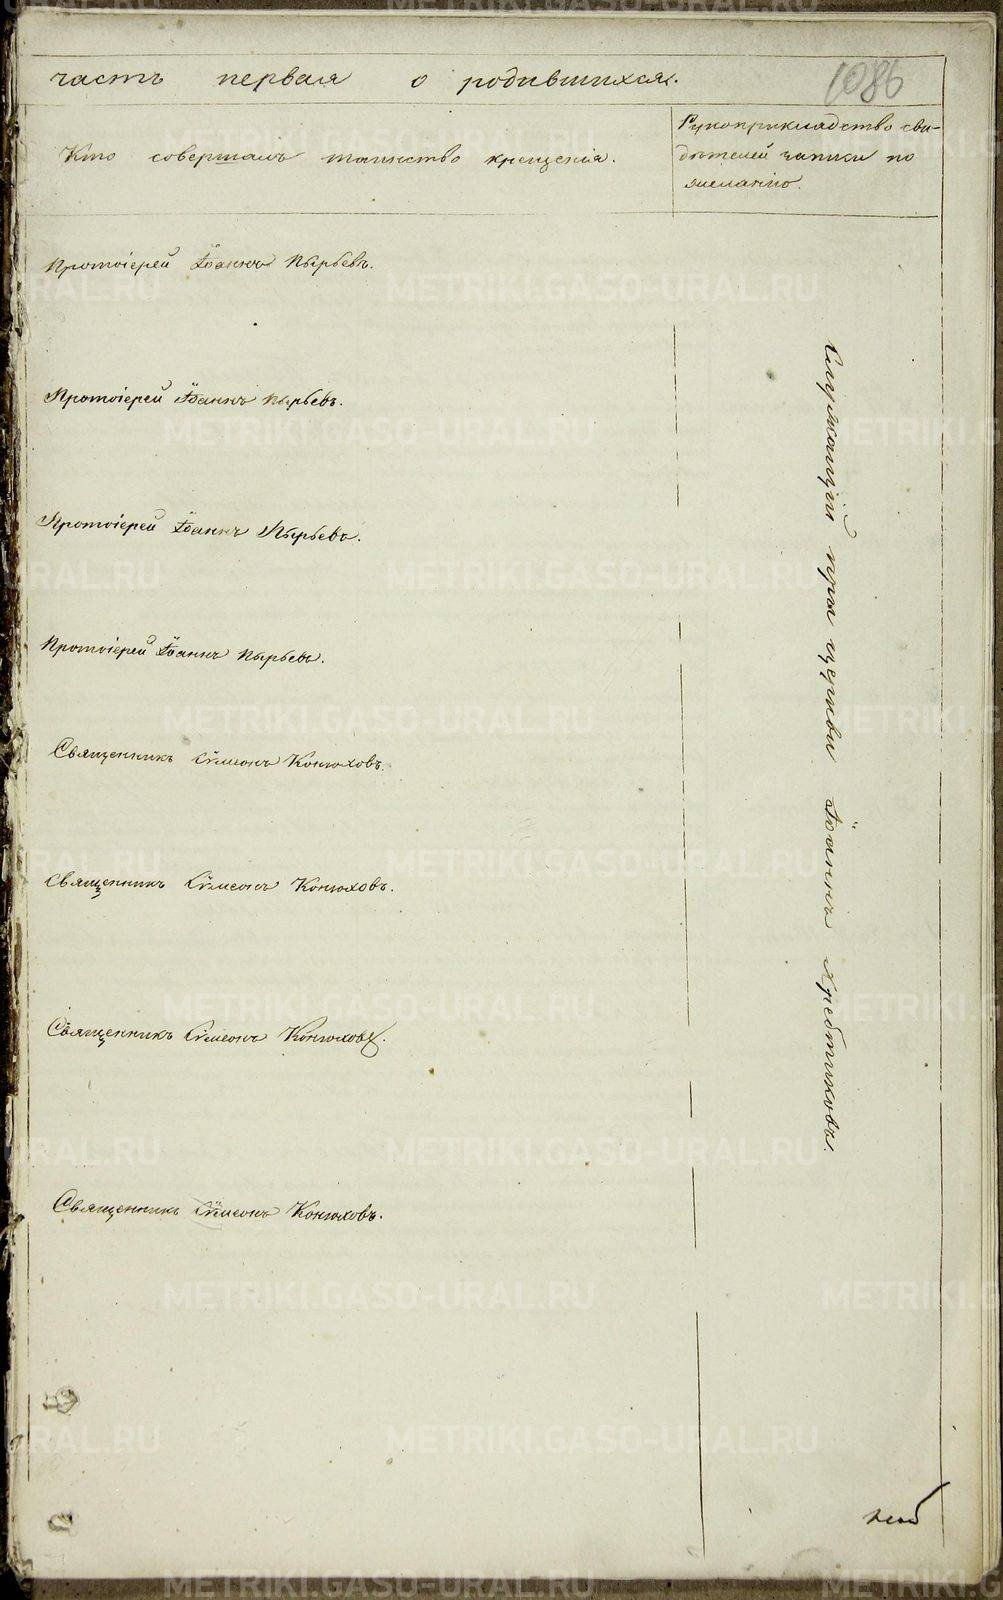 часть первая о родившихся.
1086
Кто совершалъ таинство крещенія.
Рукоприкладство сви-
дѣтелей записи по
желанію.
Протоіерей Іоаннъ Пырьевъ.
Протоіерей Іоаннъ Пырьевъ.
Протоіерей Іоаннъ Пырьевъ.
Протоіерей Іоаннъ Пырьевъ.
Священникъ Сѵмеонъ Конюховъ.
Священникъ Сѵмеонъ Конюховъ.
Священникъ Сѵмеонъ Конюховъ.
Священникъ Сѵмеонъ Конюховъ.
Служащій при церкви Іоаннъ Хребтиковъ.
METRIKI.GASO-URAL.RU